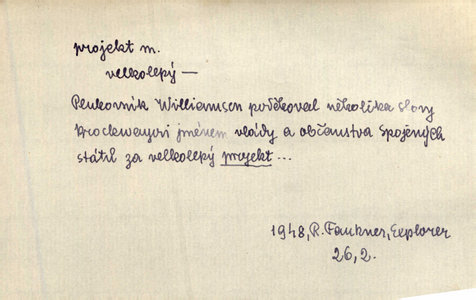 projekt m.
velkolepý —
Plukovník Williamson poděkoval několika slovy
Brockwayovi jménem vlády a občanstva Spojených
států za velkolepý projekt ...
1948, R. Faukner, Explorer
26, 2.